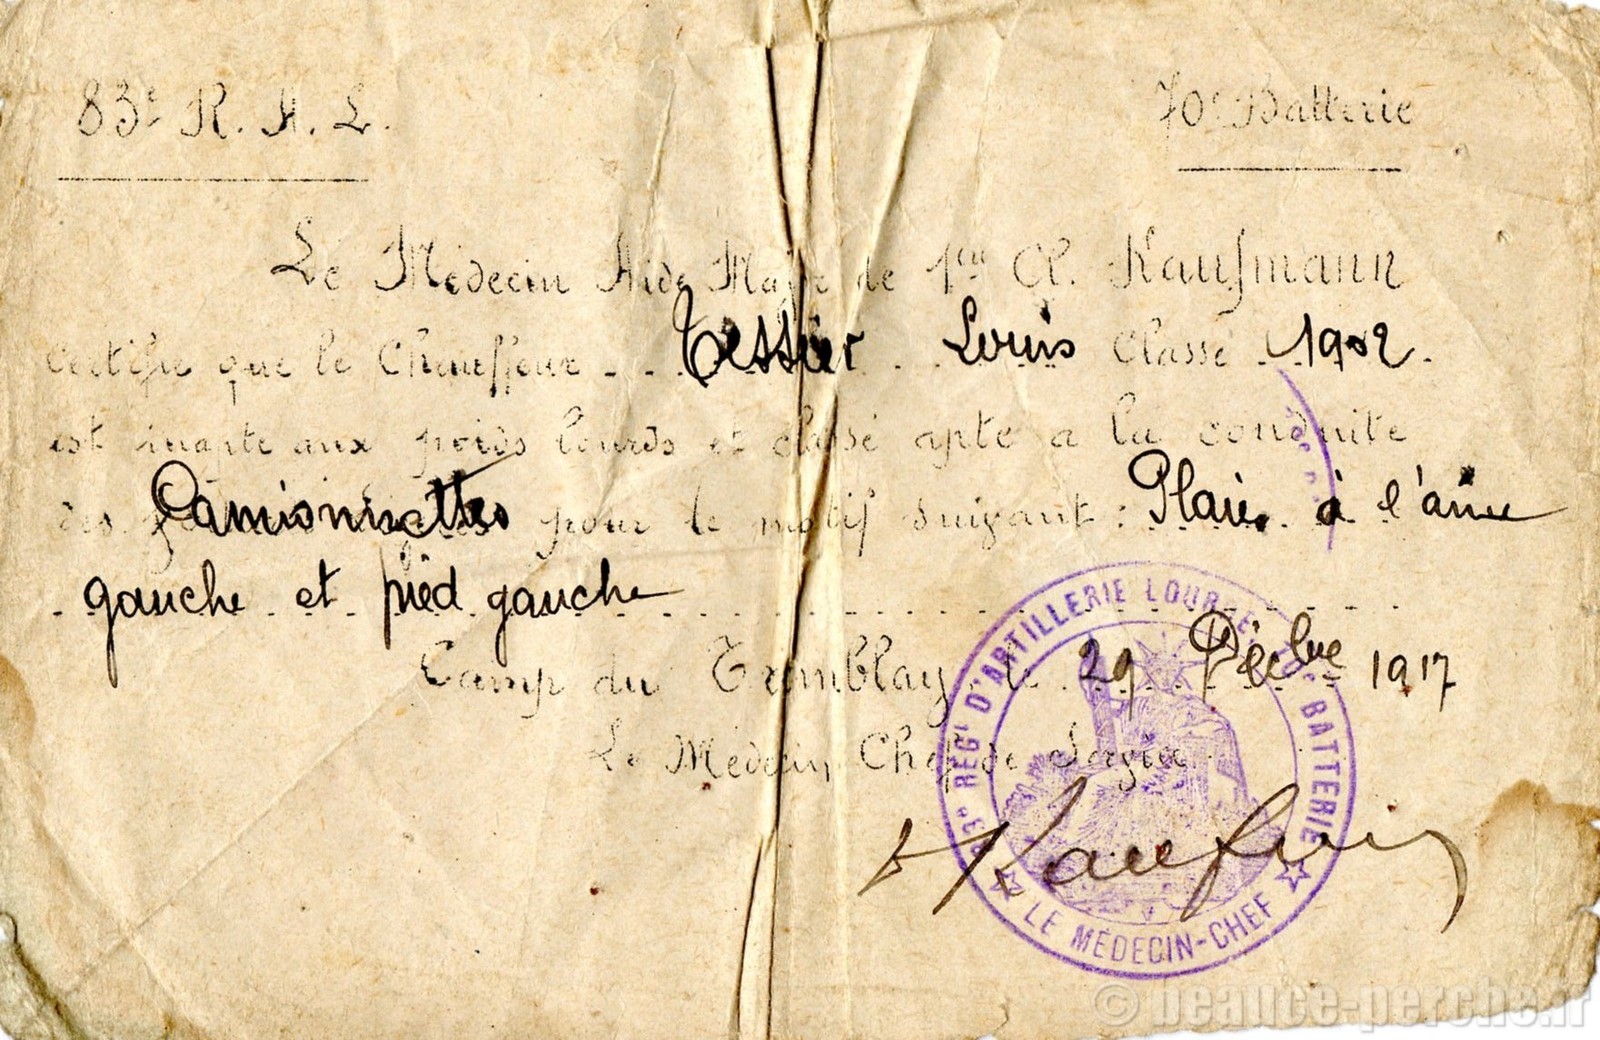 83e R. A. L.
70e Batterie
Le Médecin Aide Major de 1ère Cl. Kaufmann
certifie que le Chauffeur Tessier Louis Classe 1902.
est inapte aux poids lourds et classé apte a la conduite
des Camionnettes pour le motif suivant : Plaies à l'aine
gauche et pied gauche
Camp du Tremblay le 29 Décbre 1917
Le Médecin Chef de Service
Kaufmann
83e REGt D'ARTILLERIE LOURDE 70e BATTERIE
LE MÉDECIN-CHEF
© beauce-perche.fr